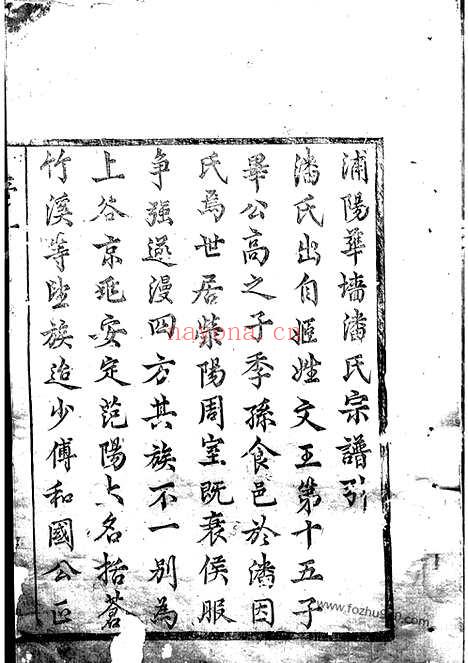 浦陽華墻潘氏宗譜引
潘氏出自姬姓文王第十五子
畢公高之子季孫食邑於潘因
氏焉世居滎陽周室既衰侯服
爭強遂漫四方其族不一别為
上谷京兆安定范陽大名括蒼
竹溪等望族迨少傅和國公
nayona.cn
www.fozhu920.com